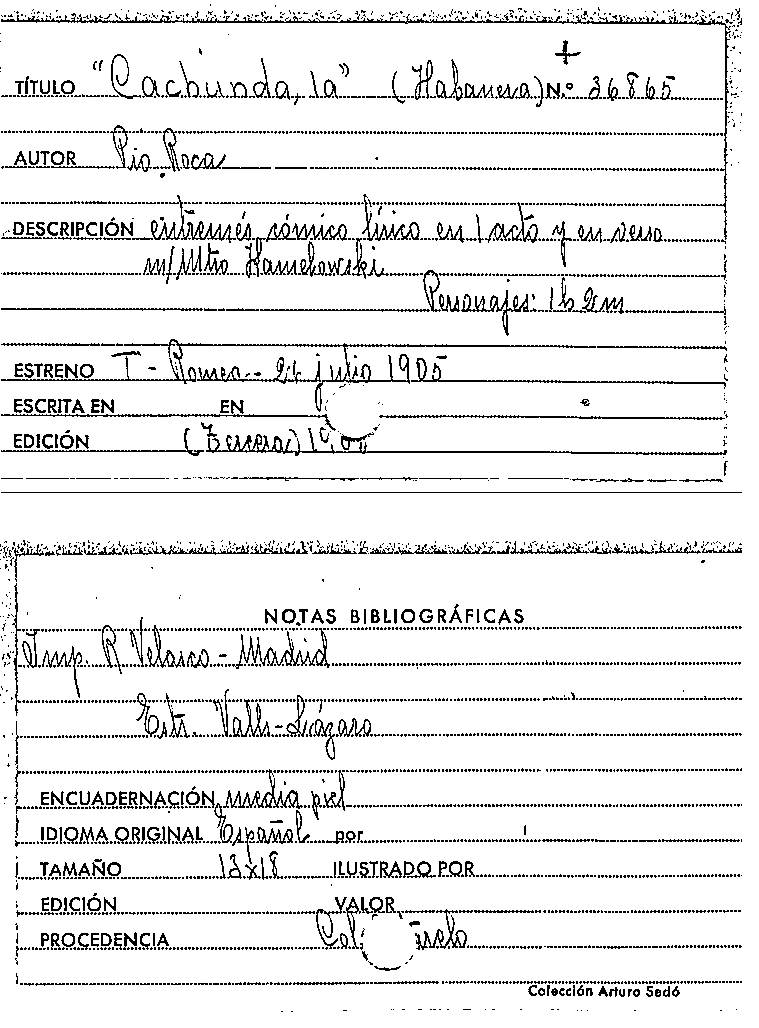 +
TÍTULO "Cachunda, la" (Habanera) N.º 36865
AUTOR Pío Roca
DESCRIPCIÓN entremés cómico lírico en 1 acto y en verso
m/ Mtro Hamelowski
Personajes: 1h 2m
ESTRENO T - Romea - julio 1905
ESCRITA EN EN
EDICIÓN (Tercera)
NOTAS BIBLIOGRÁFICAS
Imp. R Velasco - Madrid
Estr. Valls-Lázaro
ENCUADERNACIÓN media piel
IDIOMA ORIGINAL Español por
TAMAÑO 13x18 ILUSTRADO POR
EDICIÓN VALOR
PROCEDENCIA Col.
Colección Arturo Sedó